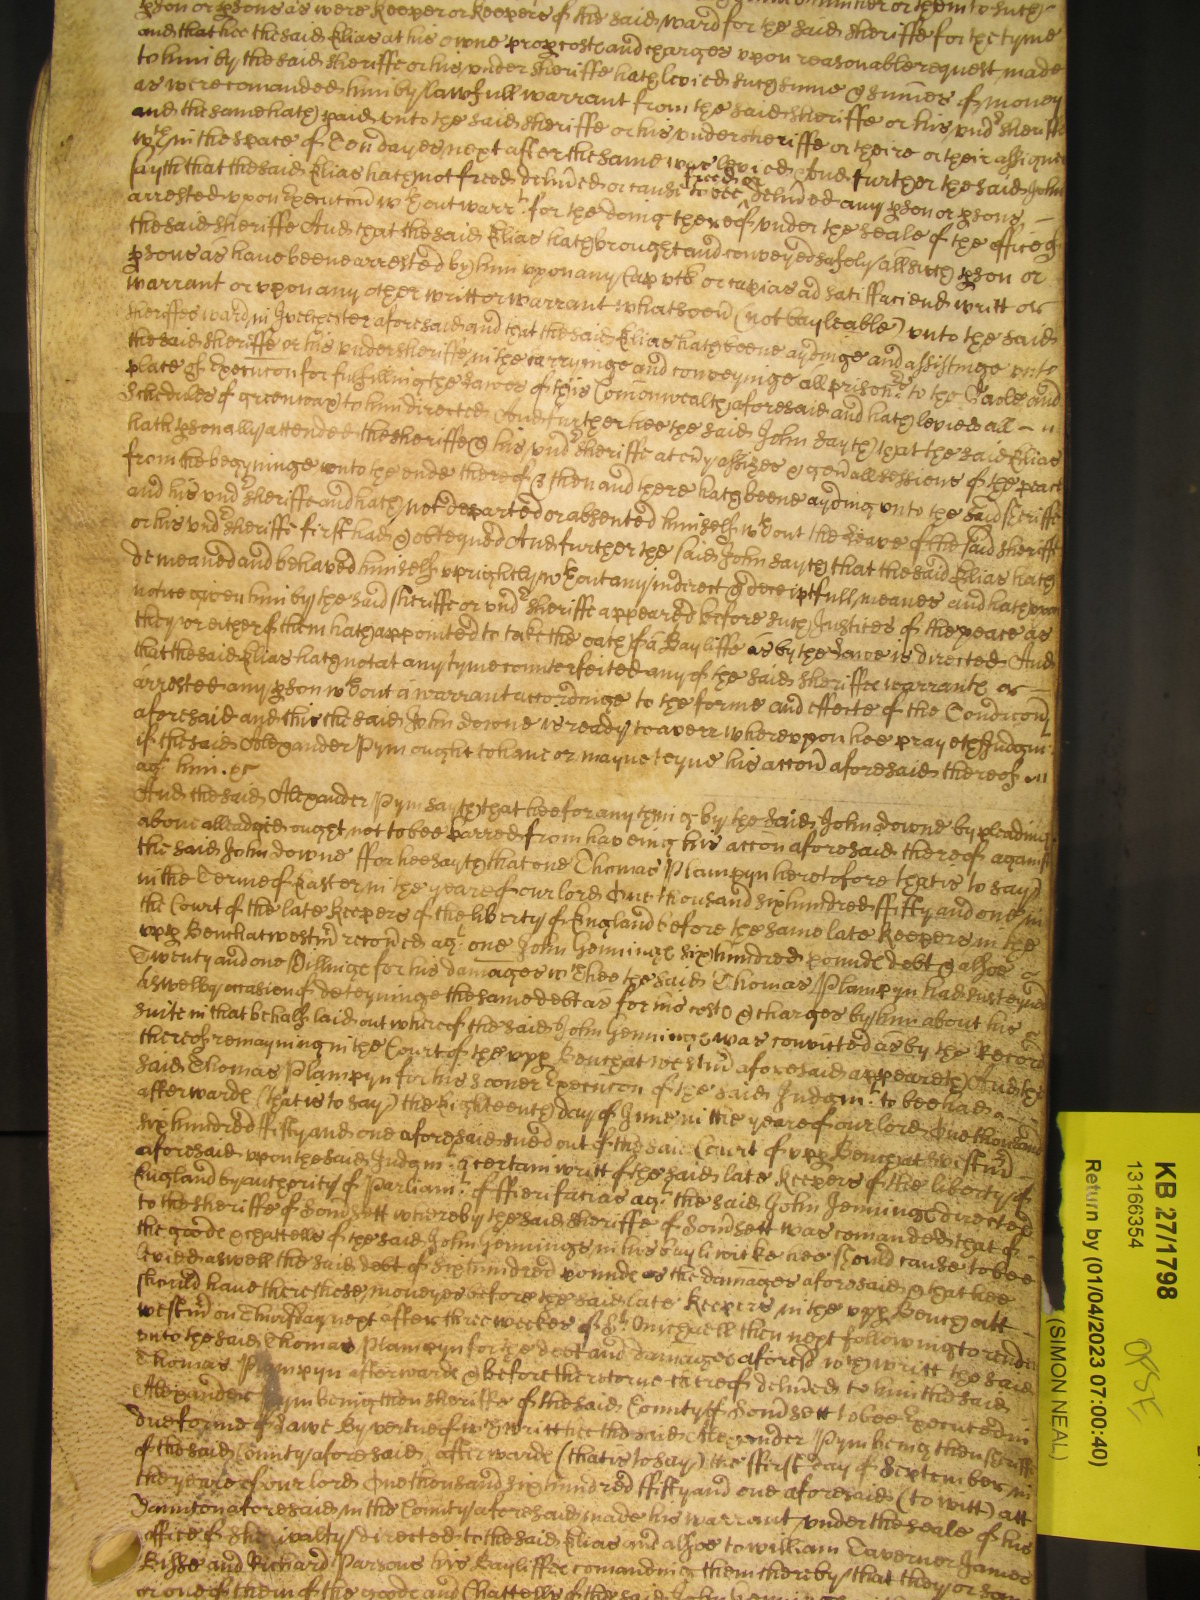 pson or psons as were keeper or keepers of the said ward for the said sheriffe for the tyme
and that hee the said Elias at his owne prop cost and charges upon reasonable request made
to him by the said sheriffe or his under sheriffe hath levied such sume & sumes of money
as were comanded him by lawfull warrant from the said sheriffe or his undr sheriffe
and the same hath paid unto the said sheriffe or his undersheriffe or theire or their assignes
wthin the space of Ten dayes next after the same was levied And further the said John
sayth that the said Elias hath not freed delivred or cause to bee freed or delivred any pson or psons
arrested upon Execucon wthout warrt for the doing thereof under the seale of the office of
the said sheriffe And that the said Elias hath brought and conveyed safely all such pson or
psons as have beene arrested by him upon any Cap utl or capias ad satisfaciend writt or
warrant or upon any other writt or warrant whatsoevr (not bayleable) unto the said
sheriffes ward in Ivelchester aforesaid and that the said Elias hath beene aydinge and assistinge unto
the said sheriffe or his undersheriffe in the carryinge and conveyinge all prisonrs to the Gaole and
place of Execucon for fulfilling the Lawes of this Comonwealth aforesaid and hath levied all
Schedules of greenwax to him directed And further hee the said John sayth that the said Elias
hath psonally attended the sheriffe & his undr sheriffe at evry assizes & genall sessions of the peace
from the begyninge unto the ende thereof & then and there hath beene ayding unto the said sheriffe
and his undr sheriffe and hath not departed or absented himself wthout the Leave of the said sheriffe
or his undr sheriffe first had & obteyned And further the said John sayth that the said Elias hath
demeaned and behaved himself uprightly wthout any indirect & deceiptfull meanes and hath upon
notice given him by the said sheriffe or undr sheriffe appeared before such Justices of the peace as
they or either of them hath appointed to take the oath of a Bayliffe as by the Lawe is directed And
that the said Elias hath not at any tyme counterfeited any of the said sheriffes warrants or
arrested any pson wthout a warrant accordinge to the forme and effecte of the Condicon
aforesaid and this the said John Downe is ready to averr whereupon hee prayeth Judgmt
if the said Alexander Pym ought to have or mayneteyne his accon aforesaid thereof
agt him &c
And the said Alexander Pym sayth that hee for any thing by the said John Downe by pleading
above alleadged ought not to bee barred from haveing his accon aforesaid thereof against
the said John Downe ffor hee sayth that one Thomas Plampyn heretofore that is to say
in the Terme of Easter in the yeare of our lord One thousand six hundred ffifty and one in
the Court of the late Keepers of the liberty of England before the same late Keepers in the
upp Bench at westmr recoved agt one John Jennings six hundred pounds debt & alsoe
Twenty and one shillings for his damages wch hee the said Thomas Plampyn had susteyned
aswell by occasion of deteyninge the same debt as for his costs & charges by him about his
suite in that behalf laid out whereof the said John Jennings was convicted as by the Record
thereof remayning in the Court of the upp Bench at westmr aforesaid appeareth And the
said Thomas Plampyn for his sooner Execucon of the said Judgmt to bee had
afterwards (that is to say) the Eighteenth day of June in the yeare of our lord One thousand
six hundred ffifty and one aforesaid sued out of the said Court of upp Bench at westmr
aforesaid upon the said Judgmt a certain writt of the said late Keepers of the liberty of
England by authority of Parliamt of ffieri facias agt the said John Jennings directed
to the sheriffe of Somsett whereby the said sheriffe of Somsett was comanded that of
the goods & chattells of the said John Jennings in his bayliwicke hee should cause to bee
levied aswell the said debt of six hundred pounds as the damages aforesaid & that hee
should have there those moneyes before the said late Keepers in the upp Bench att
westmr on Thursday next after three weekes of St Michaell then next following to render
unto the said Thomas Plampyn for the debt and damages aforesd wch writt the said
Thomas Plampyn afterwards & before the retorne thereof delivred to him the said
Alexander Pym being then sheriffe of the said County of Somsett to bee Executed in
due forme of Lawe By vertue of wch writt hee the said Alexander Pym being then sheriffe
of the said County aforesaid afterwards (that is to say) the ffirst day of September in
the yeare of our lord One thousand six hundred ffifty and one aforesaid (to witt) att
Taunton aforesaid in the County aforesaid made his warrant under the seale of his
office of Sherivalty directed to the said Elias and alsoe to William Taverner James
Bisse and Richard Parsons his Bayliffes comanding them thereby that they or some
or one of them of the goods and Chattells of the said John Jennings
KB 27/1798
13166354
Return by (01/04/2023 07:00:40)
(SIMON NEAL)